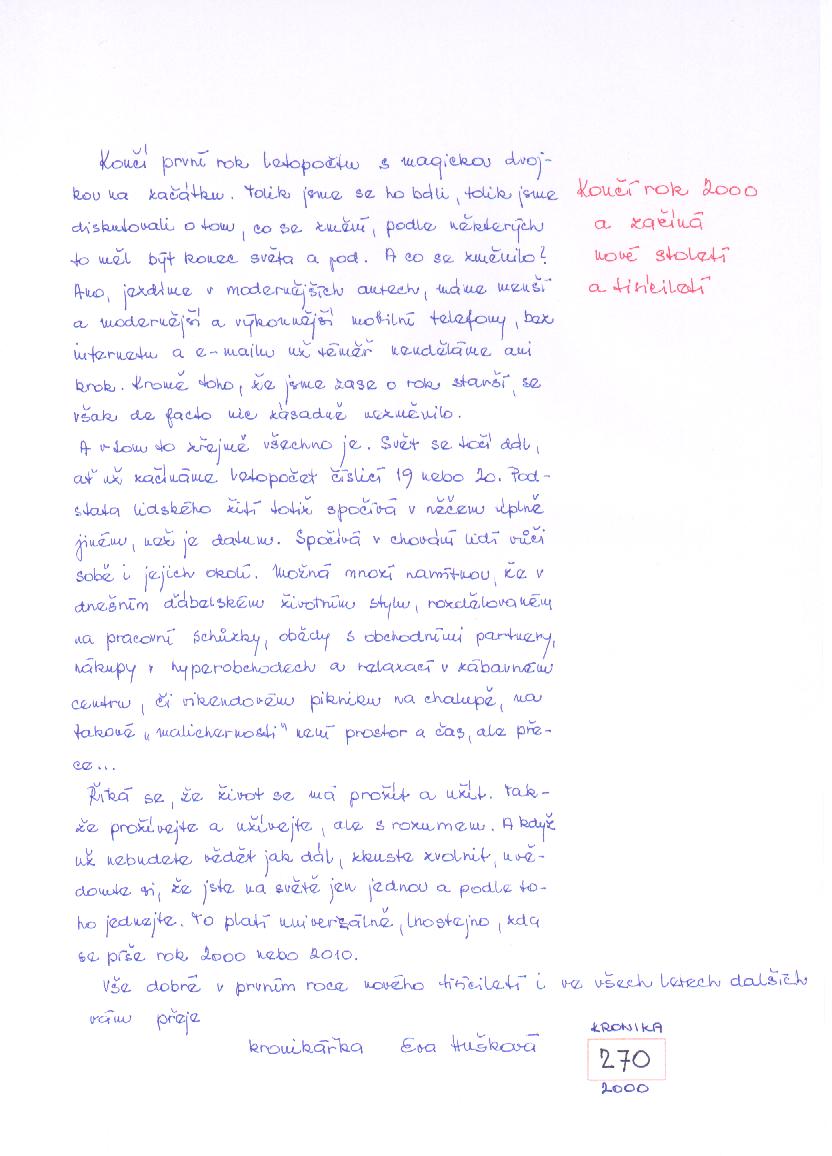 Končí první rok letopočtu s magickou dvoj-
kou na začátku. Tolik jsme se ho báli, tolik jsme
diskutovali o tom, co se změní, podle některých
to měl být konec světa a pod. A co se změnilo?
Ano, jezdíme v modernějších autech, máme menší
a modernější a výkonnější mobilní telefony, bez
internetu a e-mailu už téměř neuděláme ani
krok. Kromě toho, že jsme zase o rok starší, se
však de facto nic zásadně nezměnilo.
A v tom to zřejmě všechno je. Svět se točí dál,
ať už začínáme letopočet číslicí 19 nebo 20. Pod-
stata lidského žití totiž spočívá v něčem úplně
jiném, než je datum. Spočívá v chování lidí vůči
sobě i jejich okolí. Možná mnozí namítnou, že v
dnešním ďábelském životním stylu, rozdělovaném
na pracovní schůzky, obědy s obchodními partnery,
nákupy v hyperobchodech a relaxací v zábavném
centru, či víkendovém pikniku na chalupě, na
takové „malichernosti" není prostor a čas, ale pře-
ce...
Říká se, že život se má prožít a užít. Tak-
že prožívejte a užívejte, ale s rozumem. A když
už nebudete vědět jak dál, zkuste zvolnit, uvě-
domte si, že jste na světě jen jednou a podle to-
ho jednejte. To platí univerzálně, lhostejno, zda
se píše rok 2000 nebo 2010.
Vše dobré v prvním roce nového tisíciletí i ve všech letech dalších
vám přeje
kronikářka Eva Hušková
Končí rok 2000
a začíná
nové století
a tisíciletí
KRONIKA
270
2000